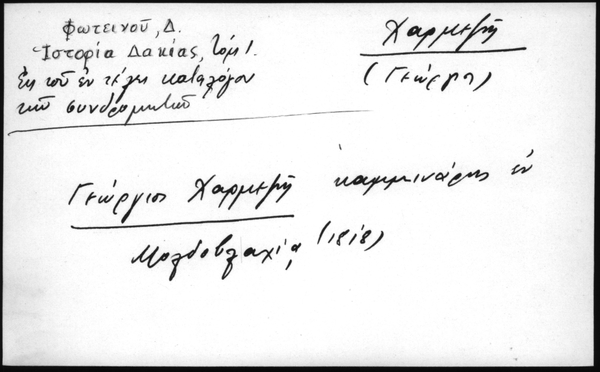 Φωτεινοῦ, Δ.
Ἱστορία Δακίας, τόμ 1.
Ἐκ τοῦ ἐν τέλει καταλόγου
τῶν συνδρομητῶν
Χαρμεζῆ
(Γεώργι)
Γεώργιος Χαρμεζῆ καμμινάρης ἐν
Μολδοβλαχίᾳ (1818)